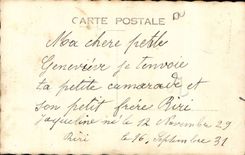 CARTE POSTALE
Ma chere petite
Genevièver je t'envoie
la petite camarade et
son petit frère Riri
Jacqueline né le 12 Novembre 29
Riri le 16 Septembre 31